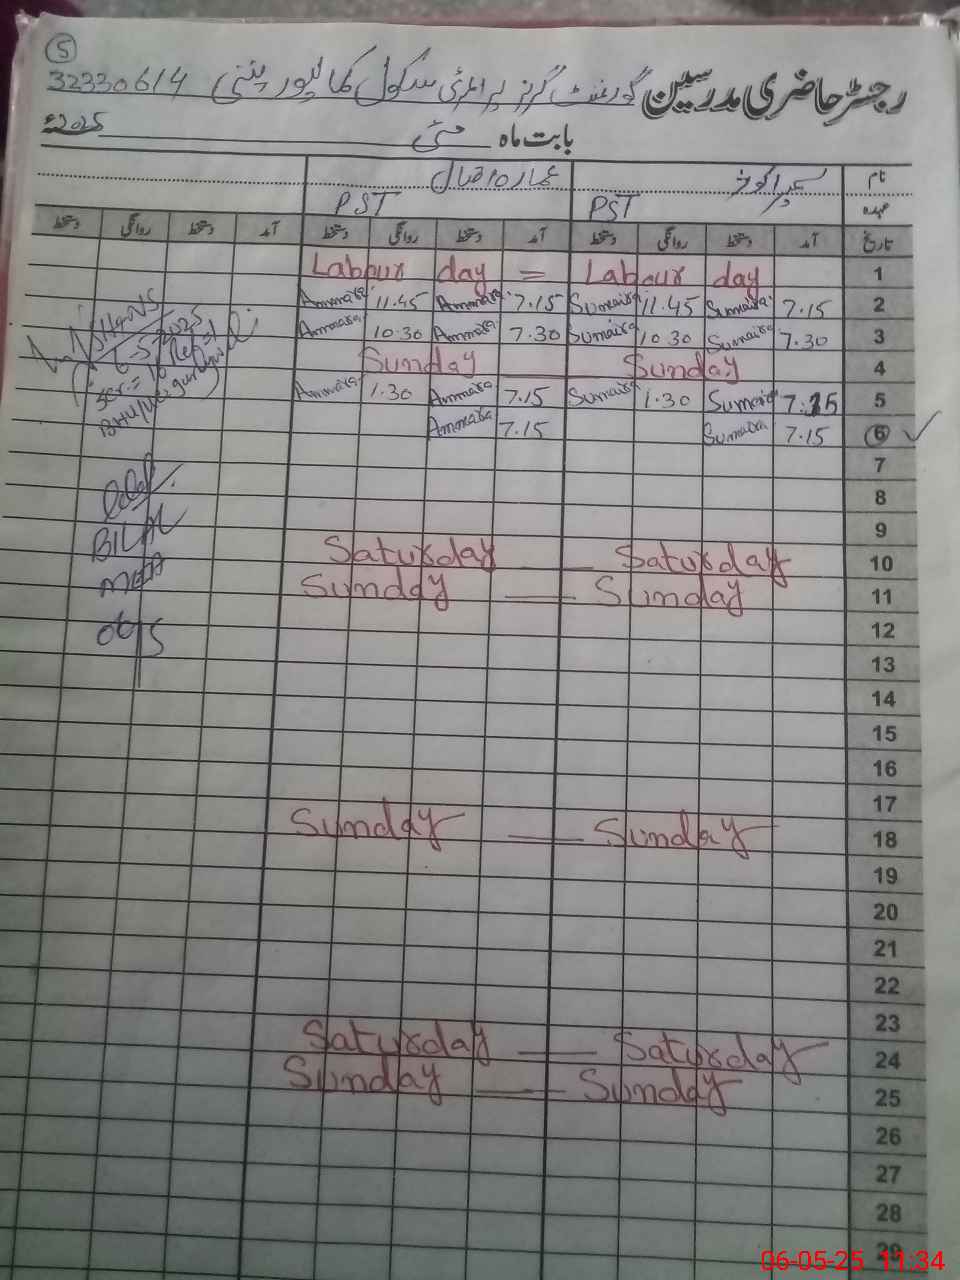 5
رجسٹر حاضری مدرسین گورنمنٹ گرلز پرائمری سکول کمالپور پتنی 32330614
بابت ماہ مئی 2025ء
نام سمیرا کوثر عمارہ اقبال
عہدہ PST PST
تاریخ آمد دستخط روانگی دستخط آمد دستخط روانگی دستخط آمد دستخط روانگی دستخط
Labour day = Labour day 1
Ammara 11.45 Ammara 7.15 Sumaira 11.45 Sumaira 7.15 2
Ammara 10.30 Ammara 7.30 Sumaira 10.30 Sumaira 7.30 3
Sunday Sunday 4
Ammara 1.30 Ammara 7.15 Sumaira 1.30 Sumaira 7.15 5
Ammara 7.15 Sumaira 7.15 6
7
8
9
Saturday Saturday 10
Sunday Sunday 11
12
13
14
15
16
17
Sunday Sunday 18
19
20
21
22
23
Saturday Saturday 24
Sunday Sunday 25
26
27
28
29
SH&NS
6-5-2025
BILAL
MEA
06/5
06-05-25 11:34